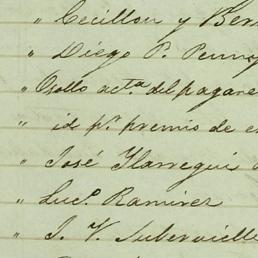 " Cecillon y Ber
" Diego P. Penny
" Osollo acta. del pagare
" id pr. premio de e
" José Ylarregui
" Luco. Ramirez
" J. V. Subervielle